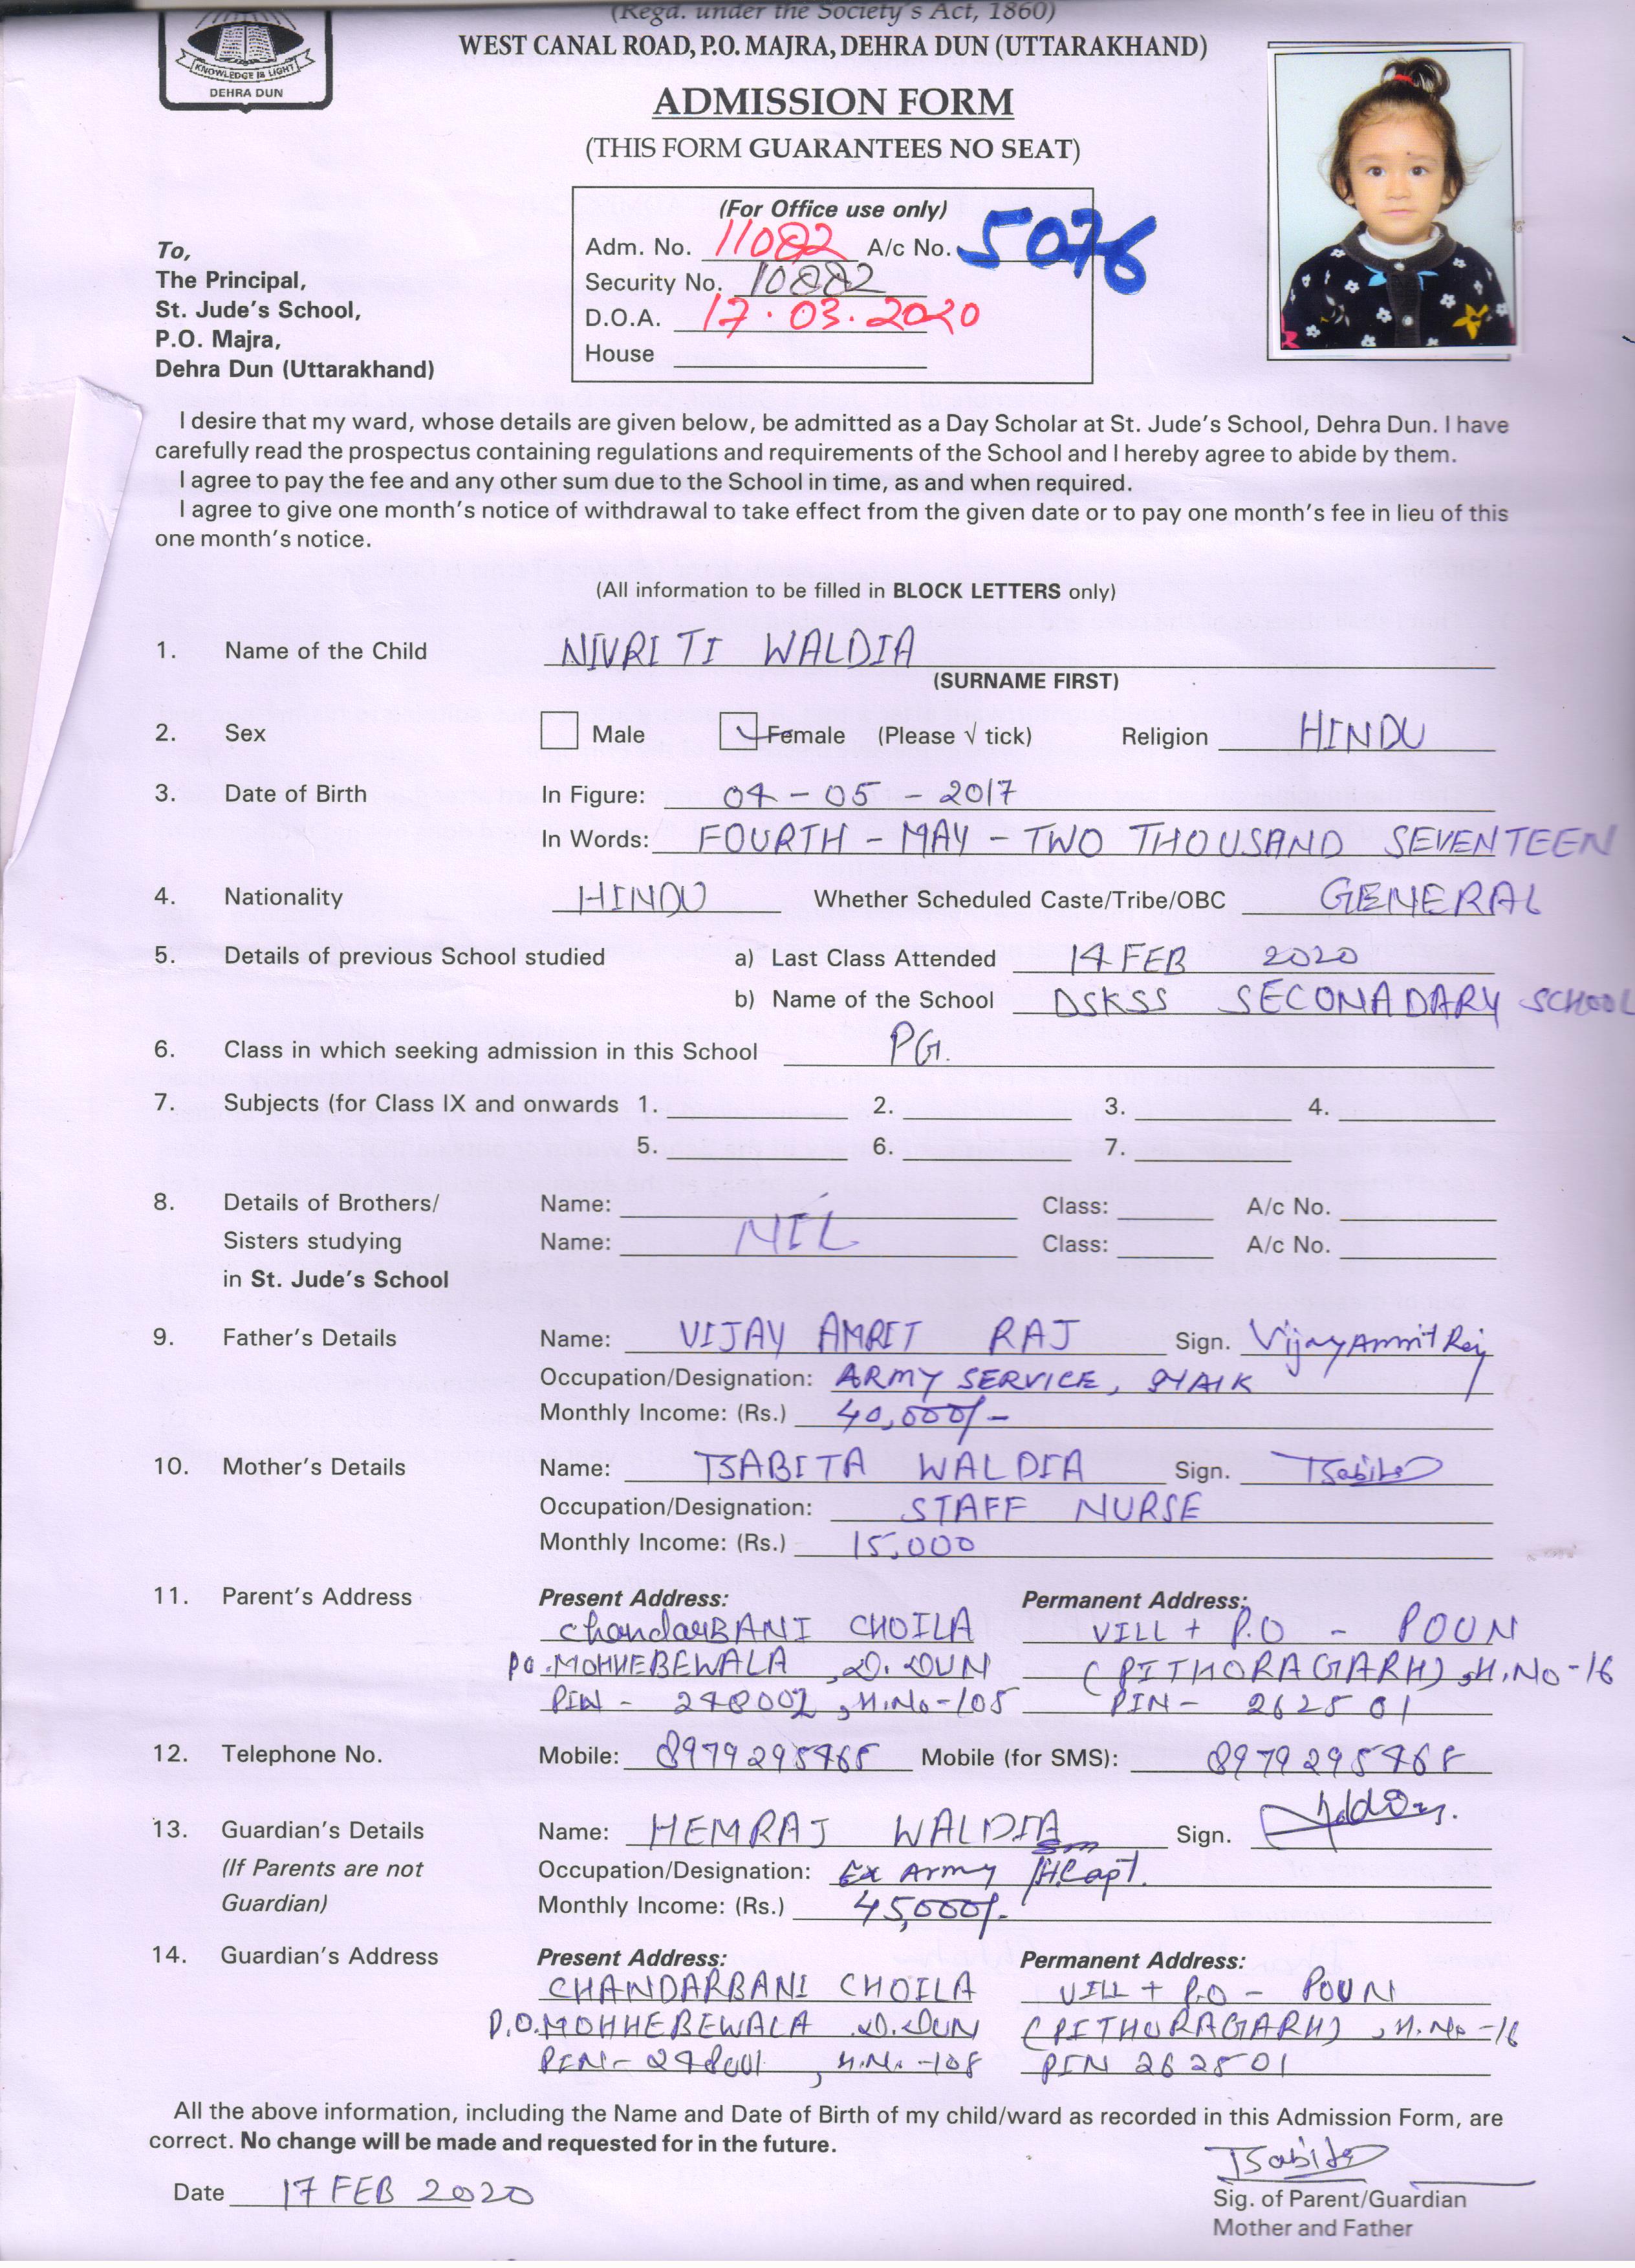 (Regd. under the Society's Act, 1860)
WEST CANAL ROAD, P.O. MAJRA, DEHRA DUN (UTTARAKHAND)
KNOWLEDGE IS LIGHT
DEHRA DUN
ADMISSION FORM
(THIS FORM GUARANTEES NO SEAT)
(For Office use only)
Adm. No. 11082 A/c No. 5076
Security No. 10882
D.O.A. 17.03.2020
House
To,
The Principal,
St. Jude's School,
P.O. Majra,
Dehra Dun (Uttarakhand)
I desire that my ward, whose details are given below, be admitted as a Day Scholar at St. Jude's School, Dehra Dun. I have
carefully read the prospectus containing regulations and requirements of the School and I hereby agree to abide by them.
I agree to pay the fee and any other sum due to the School in time, as and when required.
I agree to give one month's notice of withdrawal to take effect from the given date or to pay one month's fee in lieu of this
one month's notice.
(All information to be filled in BLOCK LETTERS only)
1. Name of the Child NIVRITI WALDIA
(SURNAME FIRST)
2. Sex Male Female (Please √ tick) Religion HINDU
3. Date of Birth In Figure: 04-05-2017
In Words: FOURTH - MAY - TWO THOUSAND SEVENTEEN
4. Nationality HINDU Whether Scheduled Caste/Tribe/OBC GENERAL
5. Details of previous School studied a) Last Class Attended 14 FEB 2020
b) Name of the School DSKSS SECONADARY SCHOOL
6. Class in which seeking admission in this School PG.
7. Subjects (for Class IX and onwards 1. 2. 3. 4.
5. 6. 7.
8. Details of Brothers/ Name: Class: A/c No.
Sisters studying Name: NIL Class: A/c No.
in St. Jude's School
9. Father's Details Name: VIJAY AMRIT RAJ Sign. Vijay Amrit Raj
Occupation/Designation: ARMY SERVICE, NAIK
Monthly Income: (Rs.) 40,000/-
10. Mother's Details Name: TSABITA WALDIA Sign. TSabita
Occupation/Designation: STAFF NURSE
Monthly Income: (Rs.) 15,000
11. Parent's Address Present Address: Permanent Address:
chandarBANI CHOILA VILL + P.O - POUN
PO.MOHHEBEWALA, D.DUN (PITHORAGARH), H.No-16
PIN - 248002, H.No-108 PIN - 262501
12. Telephone No. Mobile: 8979295468 Mobile (for SMS): 8979295468
13. Guardian's Details Name: HEMRAJ WALDIA Sign.
(If Parents are not Occupation/Designation: Ex Army /HCapt.
Guardian) Monthly Income: (Rs.) 45,000/-
14. Guardian's Address Present Address: Permanent Address:
CHANDARBANI CHOILA VILL + P.O - POUN
P.O.MOHHEBEWALA D.DUN (PITHORAGARH), H.No-16
PIN - 248001, H.No.-108 PIN 262501
All the above information, including the Name and Date of Birth of my child/ward as recorded in this Admission Form, are
correct. No change will be made and requested for in the future.
TSabita
Date 17 FEB 2020
Sig. of Parent/Guardian
Mother and Father